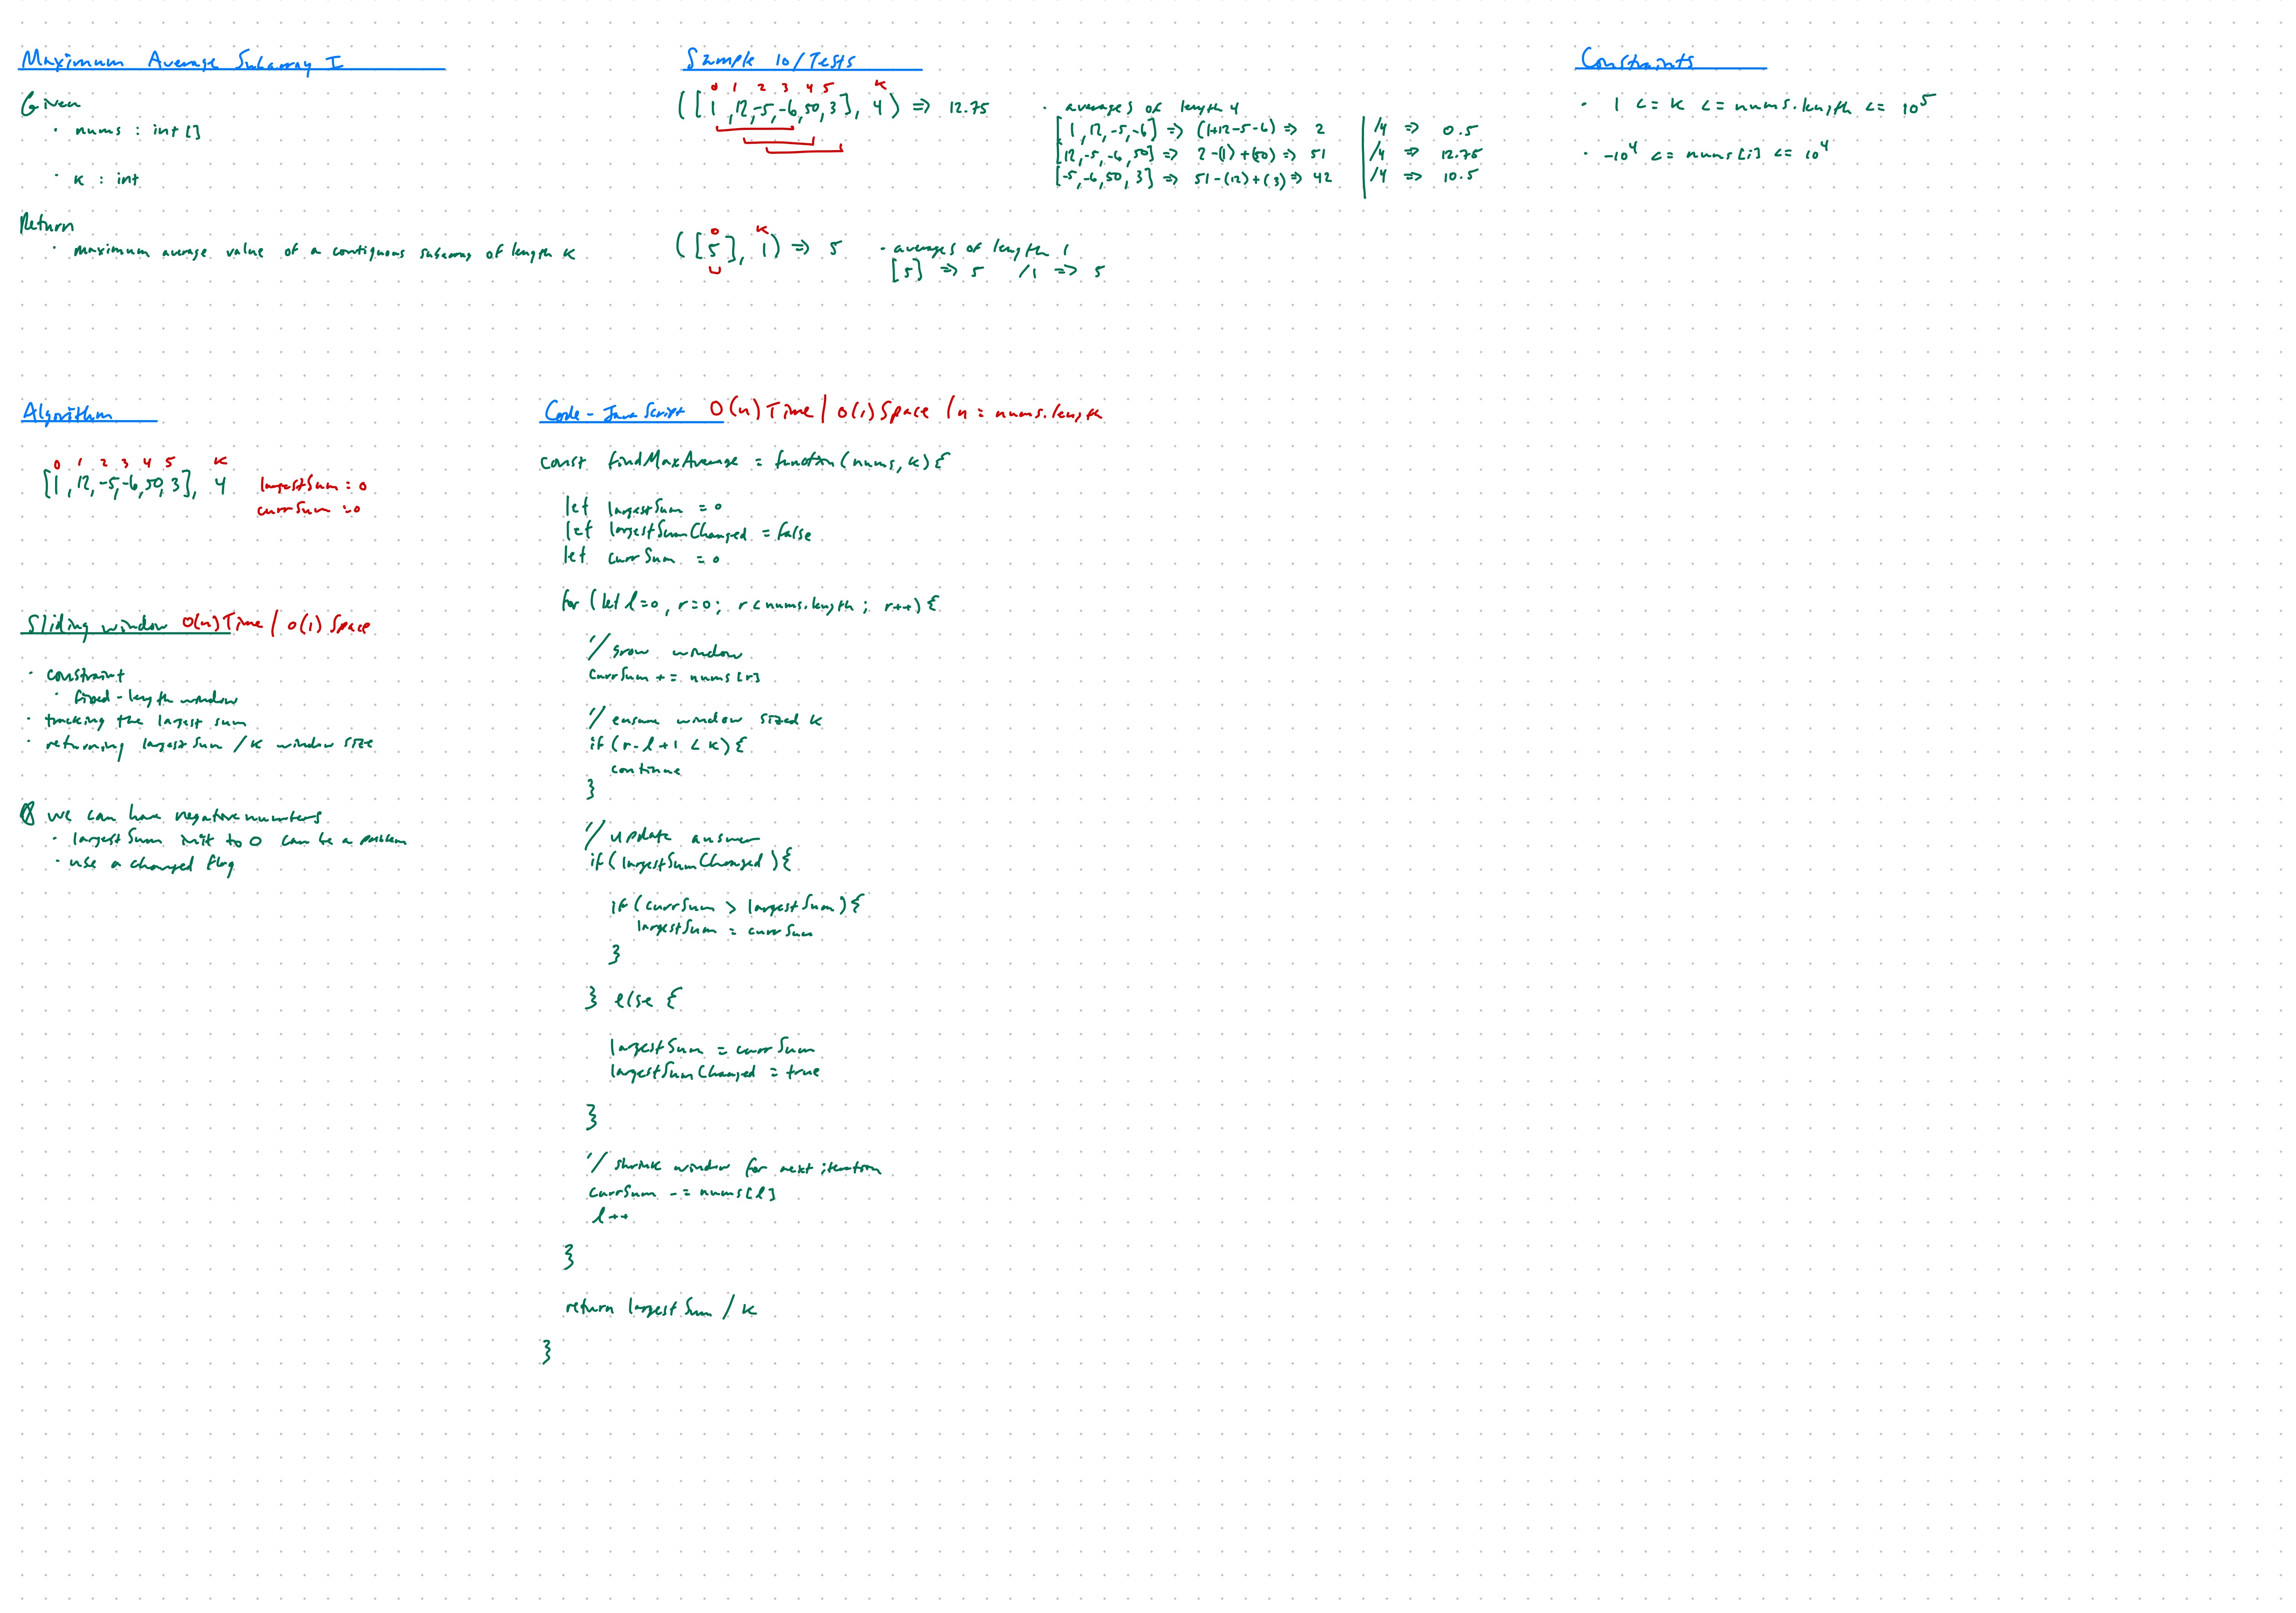 Maximum Average Subarray I
Given
· nums : int[]
· K : int
Return
· maximum average value of a contiguous subarray of length K
Sample IO/Tests
0 1 2 3 4 5 K
([1, 12, -5, -6, 50, 3], 4) => 12.75
· averages of length 4
[1, 12, -5, -6] => (1+12-5-6) => 2 | /4 => 0.5
[12, -5, -6, 50] => 2-(1)+(50) => 51 | /4 => 12.75
[-5, -6, 50, 3] => 51-(12)+(3) => 42 | /4 => 10.5
0 K
([5], 1) => 5
· averages of length 1
[5] => 5 /1 => 5
Constraints
· 1 <= K <= nums.length <= 10^5
· -10^4 <= nums[i] <= 10^4
Algorithm
0 1 2 3 4 5 K
[1, 12, -5, -6, 50, 3], 4
largestSum = 0
currSum = 0
Sliding window O(n) Time / O(1) Space
· constraint
· fixed-length window
· tracking the largest sum
· returning largestSum / K window size
we can have negative numbers
· largestSum init to 0 can be a problem
· use a changed flag
Code - JavaScript O(n) Time / O(1) Space / n = nums.length
const findMaxAverage = function(nums, K){
let largestSum = 0
let largestSumChanged = false
let currSum = 0
for (let l=0, r=0; r<nums.length; r++){
// grow window
currSum += nums[r]
// ensure window sized K
if (r-l+1 < K){
continue
}
// update answer
if (largestSumChanged){
if (currSum > largestSum){
largestSum = currSum
}
} else {
largestSum = currSum
largestSumChanged = true
}
// shrink window for next iteration
currSum -= nums[l]
l++
}
return largestSum / K
}